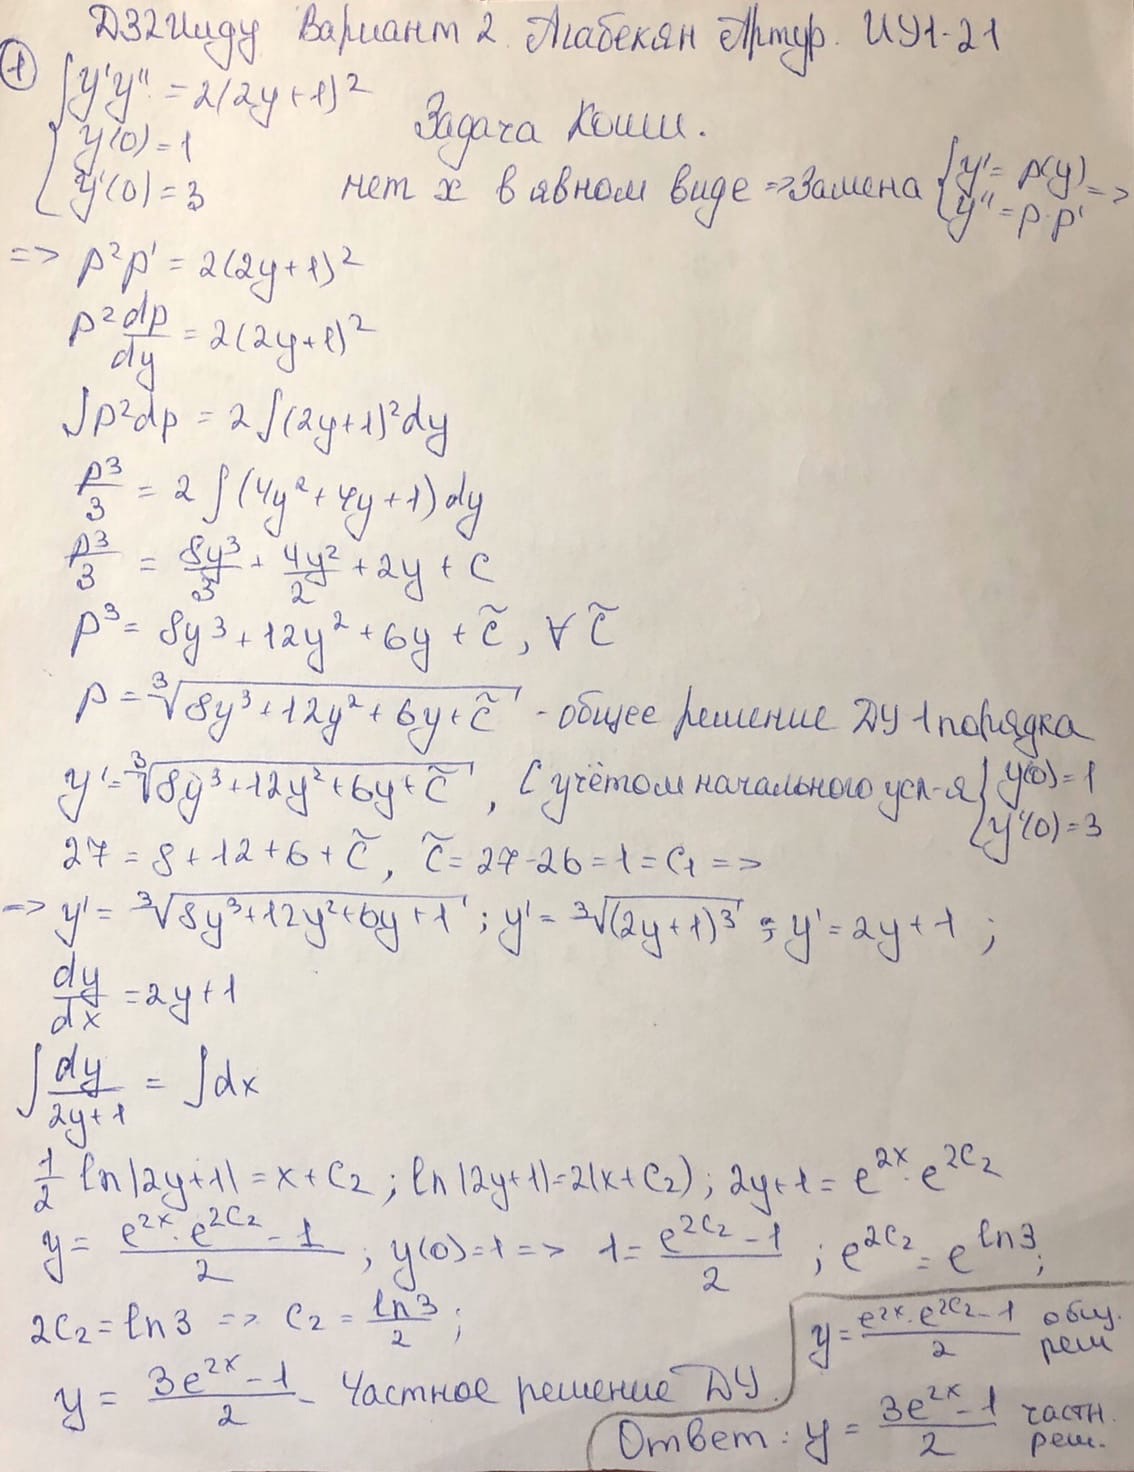 ДЗ2ИиДУ Вариант 2. Агабекян Артур. ИУ1-21
① { y'y'' = 2(2y+1)²
y(0) = 1 Задача Коши.
y'(0) = 3 нет x в явном виде => Замена { y' = p(y) y'' = p·p' =>
=> p²p' = 2(2y+1)²
p² dp/dy = 2(2y+1)²
∫p²dp = 2∫(2y+1)²dy
p³/3 = 2∫(4y²+4y+1)dy
p³/3 = 8y³/3 + 4y²/2 + 2y + C
p³ = 8y³+12y²+6y+C̃, ∀ C̃
p = ³√(8y³+12y²+6y+C̃) - общее решение ДУ 1 порядка
y' = ³√(8y³+12y²+6y+C̃), С учётом начального усл-я { y(0)=1 y'(0)=3
27 = 8+12+6+C̃, C̃ = 27-26 = 1 = C₁ =>
=> y' = ³√(8y³+12y²+6y+1); y' = ³√((2y+1)³); y' = 2y+1;
dy/dx = 2y+1
∫ dy/(2y+1) = ∫dx
1/2 ln|2y+1| = x+C₂; ln|2y+1| = 2(x+C₂); 2y+1 = e^(2x)·e^(2C₂)
y = (e^(2x)·e^(2C₂)-1)/2; y(0)=1 => 1 = (e^(2C₂)-1)/2; e^(2C₂) = e^(ln3);
2C₂ = ln3 => C₂ = ln3/2;
y = (3e^(2x)-1)/2 - Частное решение ДУ.
y = (e^(2x)·e^(2C₂)-1)/2 общ. реш
Ответ: y = (3e^(2x)-1)/2 частн. реш.